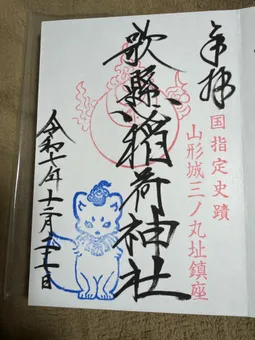 奉拝
国指定史蹟
山形城三ノ丸址鎮座
歌懸稲荷神社
令和七年十二月